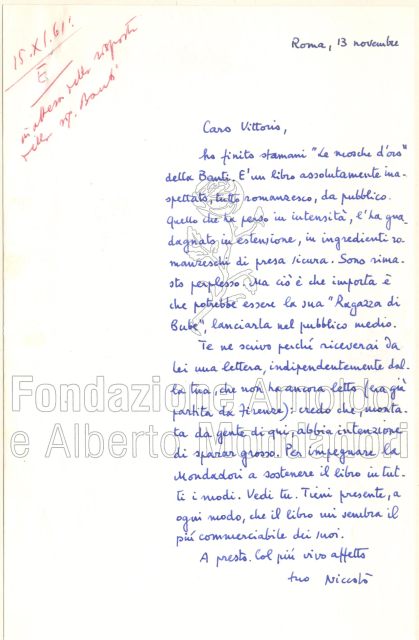 15.XI.61.
E
in attesa della risposta
della sig. Banti
Roma, 13 novembre
Caro Vittorio,
ho finito stamani "Le mosche d'oro"
della Banti. E' un libro assolutamente ina-
spettato, tutto romanzesco, da pubblico.
Quello che ha perso in intensità, l'ha gua-
dagnato in estensione, in ingredienti ro-
manzeschi di presa sicura. Sono rima-
sto perplesso. Ma ciò è che importa è
che potrebbe essere la sua "Ragazza di
Bube", lanciarla nel pubblico medio.
Te ne scrivo perché riceverai da
lei una lettera, indipendentemente dal-
la tua, che non ha ancora letto (era già
partita da Firenze): credo che, monta-
ta da gente di qui, abbia intenzione
di sparar grosso. Per impegnare la
Mondadori a sostenere il libro in tut-
ti i modi. Vedi tu. Tieni presente, a
ogni modo, che il libro mi sembra il
più commerciabile dei suoi.
A presto. Col più vivo affetto
tuo Niccolò
Fondazione Arnoldo
e Alberto Mondadori